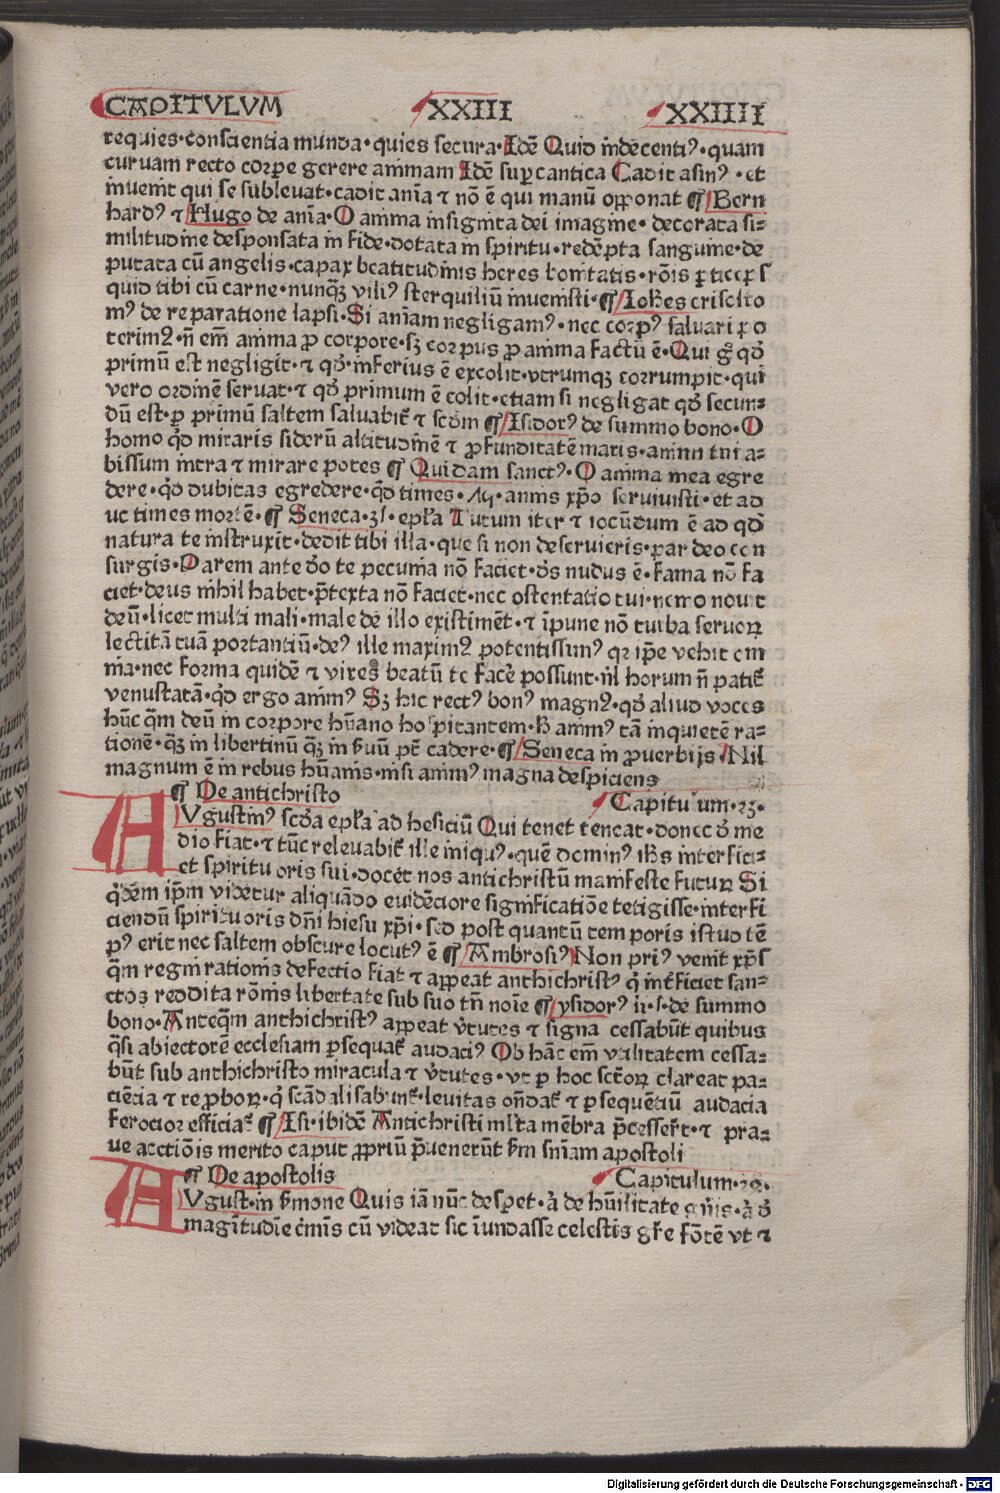 CAPITVLVM XXIII XXIIII
requies·conscientia munda·quies secura·Idē Quid indecentiꝰ·quam
curuam recto corpe gerere animam Idē suꝑ cantica Cadit asinꝰ·et
inuenit qui se subleuat·cadit aīa ⁊ nō ē qui manū opponat ¶ Bern
hardꝰ ⁊ Hugo de aīa·O anima insignita dei imagine·decorata si⸗
militudine desponsata in fide·dotata in spiritu·redēpta sanguine·de
putata cū angelis·capax beatitudinis heres bonitatis·rōis ꝑticeps
quid tibi cū carne·nunqꝫ viliꝰ sterquiliū inuenisti·¶ Iohes crisosto
mꝰ de reparatione lapsi·Si aniam negligamꝰ·nec corpꝰ saluari po
terimꝰ·n̄ em̄ anima ꝓ corpore·sꝫ corpus ꝓ anima factū ē·Qui gͦ qď
primū est negligit·⁊ qď·inferius ē excolit·vtrumqꝫ corrumpit·qui
vero ordinē seruat·⁊ qď primum ē colit·etiam si negligat qď secun⸗
dū est·ꝑ primū saltem saluabit̄ ⁊ scdm ¶ Isidorꝰ de summo bono·O
homo qď miraris siderū altitudinē ⁊ ꝓfunditatē maris·animi tui a⸗
bissum intra ⁊ mirare potes ¶ Quidam sanctꝰ·O anima mea egre
dere·qď dubitas egredere·qď times· annis xp̄o seruiuisti·et ad
uc times mortē·¶ Seneca·31·epl̄a Tutum iter ⁊ iocūdum ē ad qď
natura te instruxit·dedit tibi illa·que si non deserueris·par deo con
surgis·Parem ante deo te pecunia nō faciet·ds nudus ē·fama nō fa
ciet·deus nihil habet·p̄texta nō faciet·nec ostentatio tui·nemo nouit
deū·licet multi mali·male de illo existimēt·⁊ īpune nō turba seruoꝝ
lectitā tuā portantiū·deꝰ ille maximꝰ potentissimꝰ qr ip̄e vehit om
nia·nec forma quidē ⁊ vires beatū te facē possunt·nil horum n̄ patit̄
venustatā·qď ergo animꝰ Sꝫ hic rectꝰ bonꝰ magnꝰ·qď aliud voces
hūc qm̄ deū in corpore hūano hospitantem·h animꝰ tā inquietē ra⸗
tionē·qꝫ in libertinū qꝫ in ẜuū pt̄ cadere·¶ Seneca in ꝓuerbijs Nil
magnum ē in rebus hūanis·nisi animꝰ magna despiciens
¶ De antichristo Capitulum·23·
AVgustinꝰ scd̄a epl̄a ad hesiciū Qui tenet teneat·donec de me
dio fiat·⁊ tūc releuabit̄ ille iniquꝰ·quē dominꝰ ihs interfici⸗
et spiritu oris sui·docēt nos antichristū manifeste futuꝝ Si
qdem ip̄m videtur aliquādo euidēciore significatiōe tetigisse·interfi
ciendū spiritu oris dn̄i hiesu xp̄i·sed post quantū temporis istud tē
pꝰ erit nec saltem obscure locutꝰ ē ¶ Ambrosiꝰ Non priꝰ venit xp̄s
qm̄ regni rationis defectio fiat ⁊ appeat anthichristꝰ q̇ int̄ficiet san⸗
ctos reddita rōnis libertate sub suo tn̄ noie ¶ ysidorꝰ ii·l·de summo
bono·Anteqm̄ anthichristꝰ appeat v̄tutes ⁊ signa cessabūt quibus
q̇si abiectorē ecclesiam ꝑsequat̄ audaciꝰ Ob hāc em̄ vtilitatem cessa⸗
būt sub anthichristo miracula ⁊ v̄tutes·vt ꝑ hoc sctōꝝ clareat pa⸗
ciētia ⁊ reꝓboꝝ·q̇ scādalisabunt̄·leuitas on̄dat̄ ⁊ ꝑsequētiū audacia
ferocior efficiat̄ ¶ Isi·ibidē Antichristi ml̄ta mēbra p̄cesser̄t·⁊ pra⸗
ue acctiōis merito caput ꝓpriū p̄uenerūt ẜm sn̄iam apostoli
¶ De apostolis Capitulum·24·
AVgust·in ẜmone Quis iā nūc despet·à de hūilitate gn̄is·à d̄
magītudīe c̄mīs cū videat sic īundasse celestis gr̄e fōtē vt ⁊
Digitalisierung gefördert durch die Deutsche Forschungsgemeinschaft · DFG